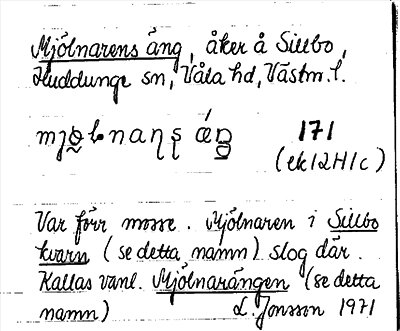 Mjölnarens äng, åker å Sillbo,
Huddunge sn, Våla hd, Västm. l.
171
(ek12H1c)
Var förr mosse. Mjölnaren i Sillbo
kvarn (se detta namn) slog där.
Kallas vanl. Mjölnarängen (se detta
namn) L. Jonsson 1971